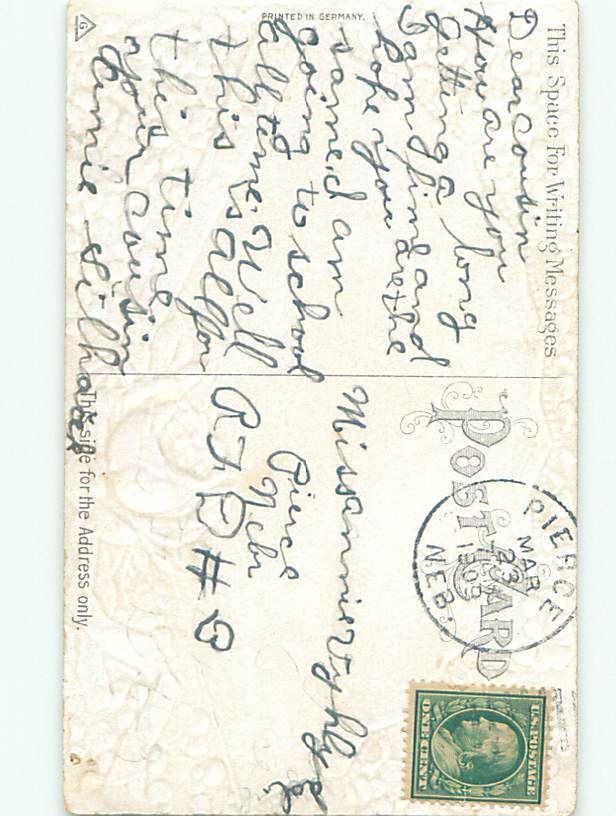 This Space For Writing Messages
Dear cousin
How are you
getting a long
I am fine and
hope you are the
same. I am
going to school
all tyme. Well
this is all for
this time
your cousin
Annie
PRINTED IN GERMANY.
G
POST CARD
PIERCE
MAR
23
1909
NEB.
U.S. POSTAGE
ONE CENT
Miss annie
Pierce
Nebr
R F D #
This side for the Address only.